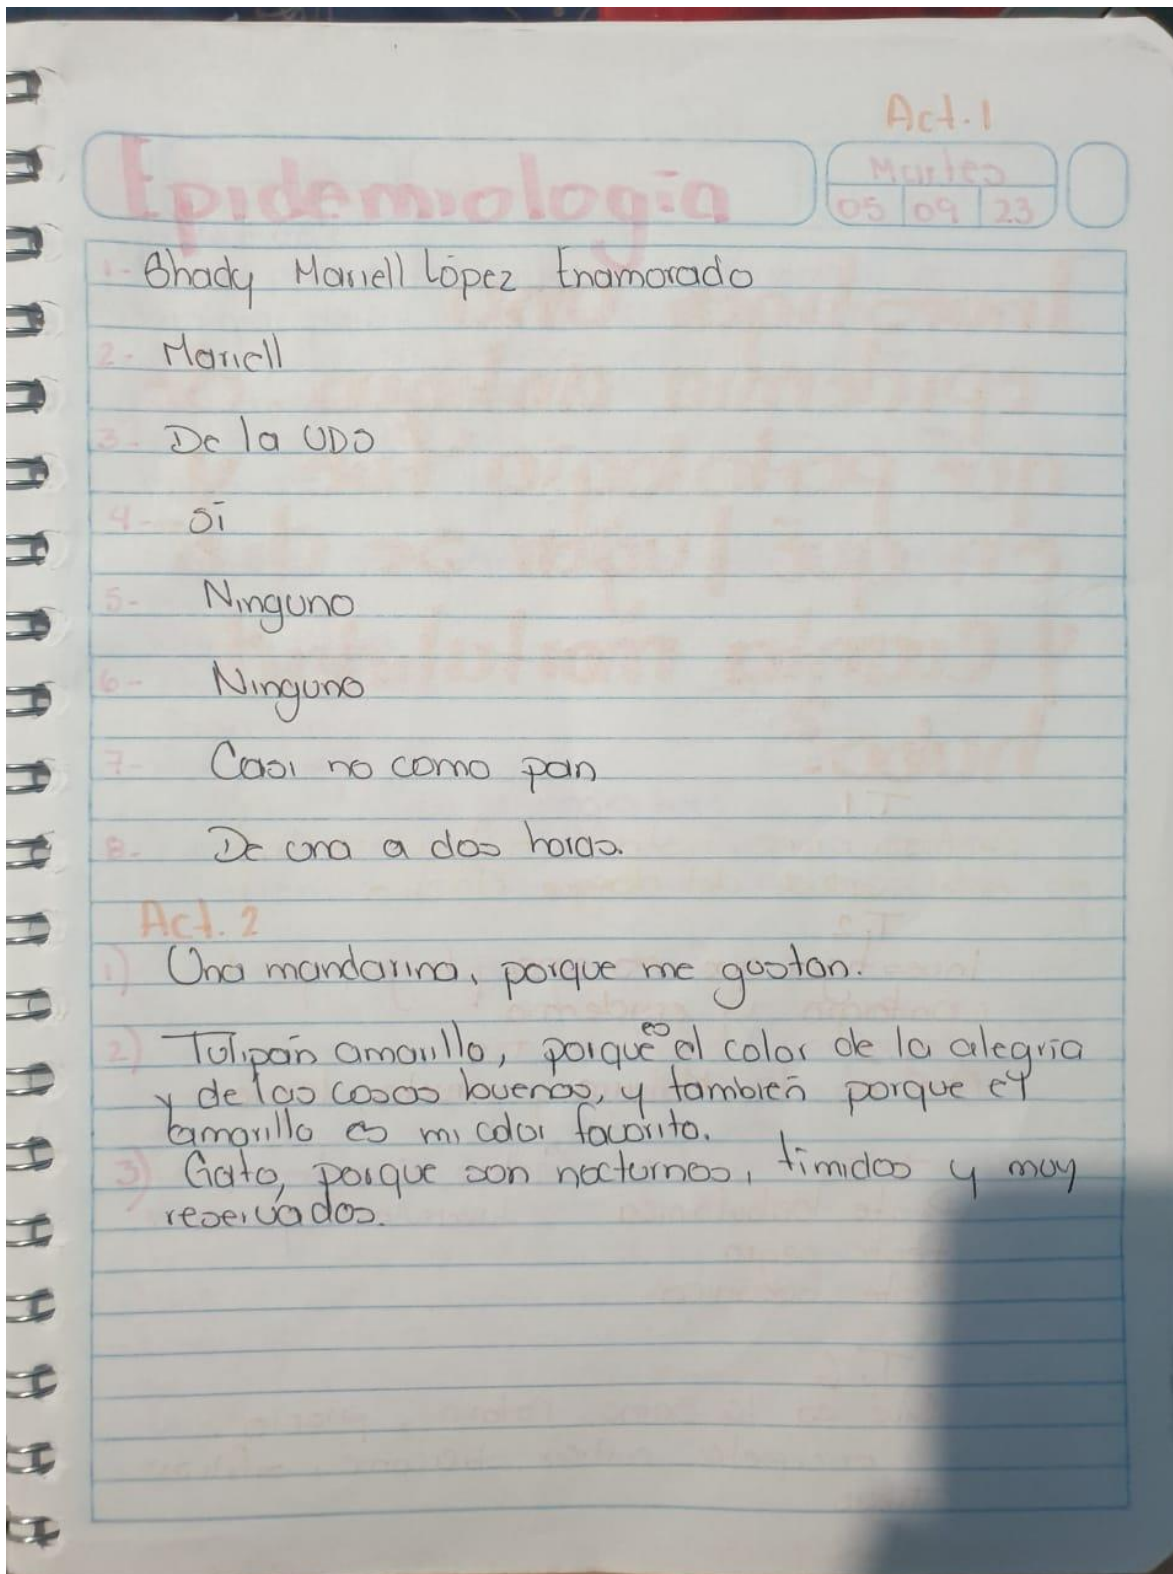 Act. 1
Epidemiología
Martes
05 09 23
1- Shady Mariell López Enamorado
2- Mariell
3- De la UDO
4- Sí
5- Ninguno
6- Ninguno
7- Casi no como pan
8- De una a dos horas.
Act. 2
1) Una mandarina, porque me gustan.
2) Tulipán amarillo, porque es el color de la alegría
y de las cosas buenas, y también porque el
amarillo es mi color favorito.
3) Gato, porque son nocturnos, timidos y muy
reservados.